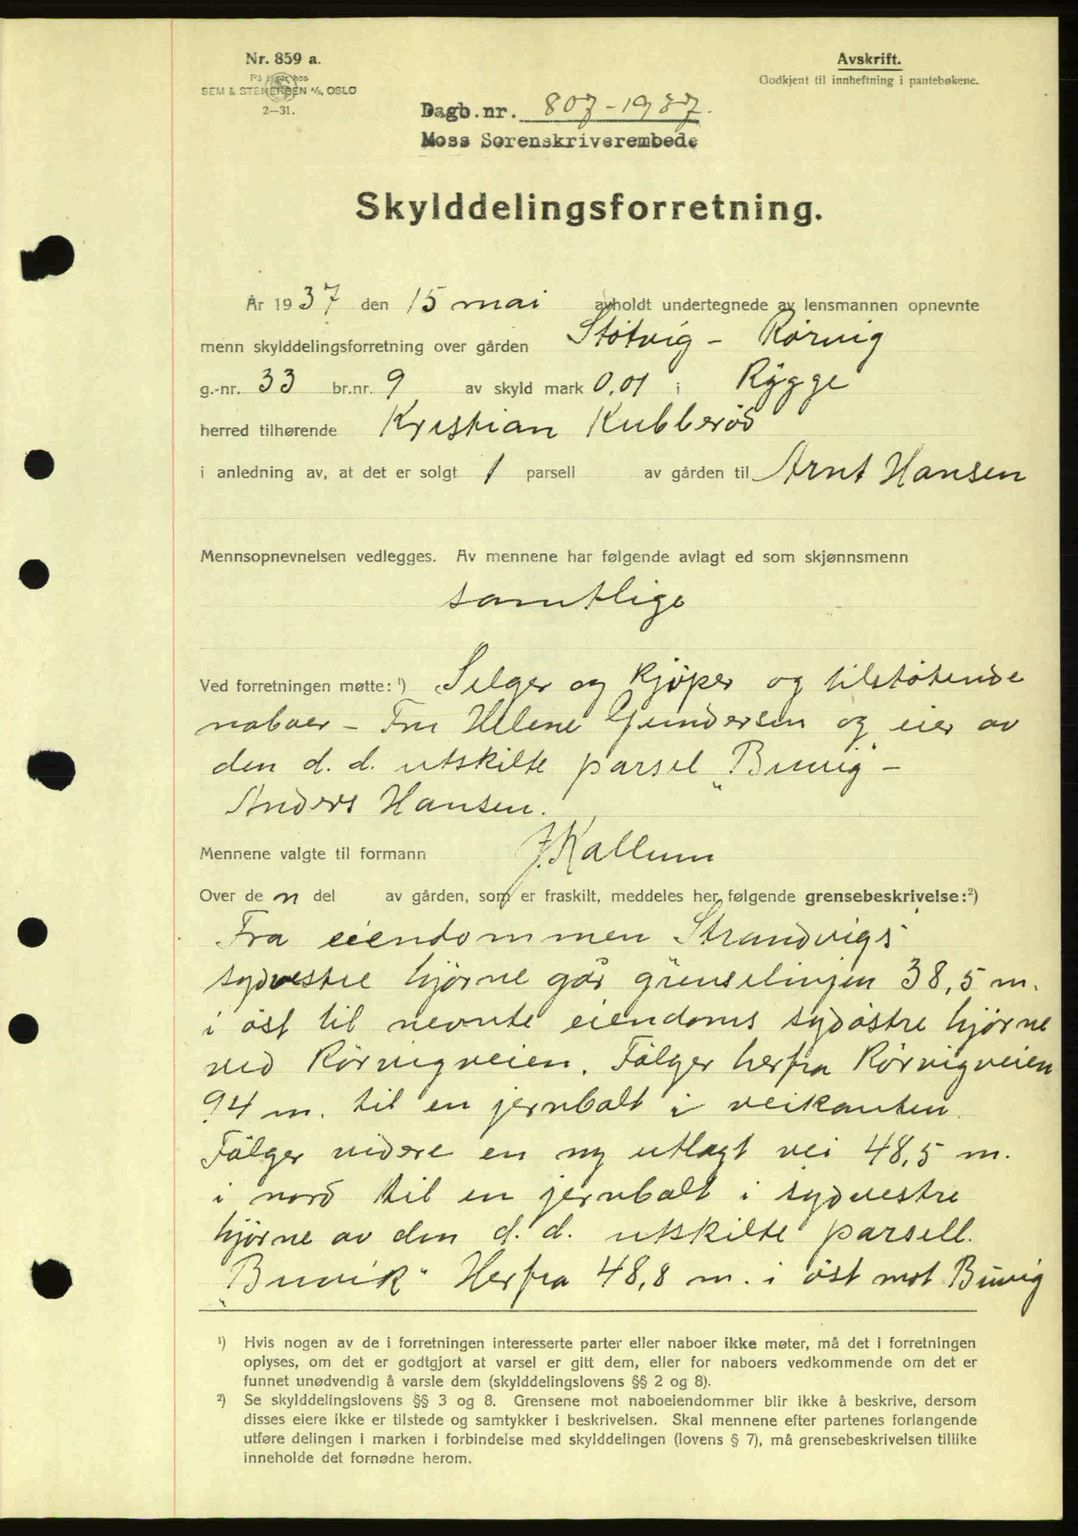 Nr. 859 a.
På lager hos
SEM & STENERSEN A/S, OSLO
2—31.
Avskrift.
Godkjent til innheftning i pantebøkene.
Dagb.nr. 807-1937.
Moss Sorenskriverembede
Skylddelingsforretning.
År 1937 den 15 mai avholdt undertegnede av lensmannen opnevnte
menn skylddelingsforretning over gården Støtvig - Rørvig
g.-nr. 33 br.nr. 9 av skyld mark 0,01 i Rygge
herred tilhørende Kristian Kubberød
i anledning av, at det er solgt 1 parsell av gården til Arnt Hansen
Mennsopnevnelsen vedlegges. Av mennene har følgende avlagt ed som skjønnsmenn
samtlige
Ved forretningen møtte: ¹) Selger og kjøper og tilstøtende
naboer - Fru Helene Gundersen og eier av
den d. d. utskilte parsel „Buvig" -
Anders Hansen.
Mennene valgte til formann J. Kallum
Over de n del av gården, som er fraskilt, meddeles her følgende grensebeskrivelse: ²)
Fra eiendommen Strandvigs
sydvestre hjørne går grenselinjen 38,5 m.
i øst til nevnte eiendoms sydøstre hjørne
ved Rørvigveien. Følger herfra Rørvigveien
94 m. til en jernbolt i veikanten.
Følger videre en ny utlagt vei 48,5 m.
i nord til en jernbolt i sydvestre
hjørne av den d. d. utskilte parsell.
„Buvik" Herfra 48,8 m. i øst mot Buvig
¹) Hvis nogen av de i forretningen interesserte parter eller naboer ikke møter, må det i forretningen
oplyses, om det er godtgjort at varsel er gitt dem, eller for naboers vedkommende om det er
funnet unødvendig å varsle dem (skylddelingslovens §§ 2 og 8).
²) Se skylddelingslovens §§ 3 og 8. Grensene mot naboeiendommer blir ikke å beskrive, dersom
disses eiere ikke er tilstede og samtykker i beskrivelsen. Skal mennene efter partenes forlangende
utføre delingen i marken i forbindelse med skylddelingen (lovens § 7), må grensebeskrivelsen tillike
inneholde det fornødne herom.